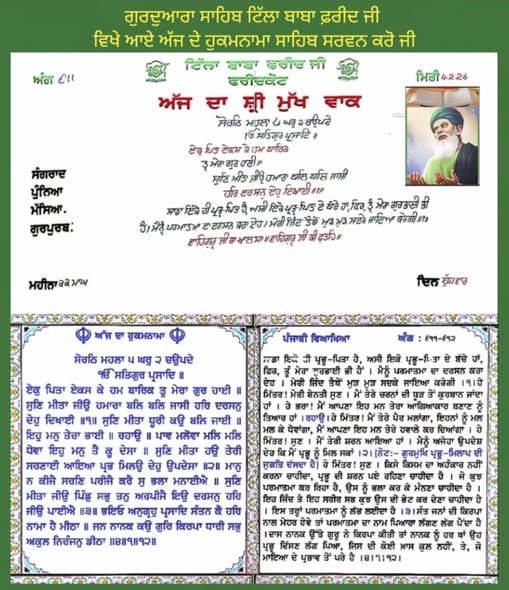 ਗੁਰਦੁਆਰਾ ਸਾਹਿਬ ਟਿੱਲਾ ਬਾਬਾ ਫ਼ਰੀਦ ਜੀ
ਵਿਖੇ ਆਏ ਅੱਜ ਦੇ ਹੁਕਮਨਾਮਾ ਸਾਹਿਬ ਸਰਵਨ ਕਰੋ ਜੀ
ਟਿੱਲਾ ਬਾਬਾ ਫਰੀਦ ਜੀ
ਫਰੀਦਕੋਟ
ਅੰਗ ੬੧੧
ਮਿਤੀ 4.2.26
ਅੱਜ ਦਾ ਸ਼੍ਰੀ ਮੁੱਖ ਵਾਕ
ਸੋਰਠਿ ਮਹਲਾ ੫ ਘਰੁ ੨ ਚਉਪਦੇ
ੴ ਸਤਿਗੁਰ ਪ੍ਰਸਾਦਿ ॥
ਏਕੁ ਪਿਤਾ ਏਕਸ ਕੇ ਹਮ ਬਾਰਿਕ
ਤੂ ਮੇਰਾ ਗੁਰ ਹਾਈ ॥
ਸੁਣਿ ਮੀਤਾ ਜੀਉ ਹਮਾਰਾ ਬਲਿ ਬਲਿ ਜਾਸੀ
ਹਰਿ ਦਰਸਨੁ ਦੇਹੁ ਦਿਖਾਈ ॥੧॥
ਸੰਗਰਾਦ
ਪੁੰਨਿਆ
ਮੱਸਿਆ.
ਗੁਰਪੁਰਬ:
ਸਾਡਾ ਇੱਕੋ ਹੀ ਪ੍ਰਭੂ-ਪਿਤਾ ਹੈ, ਅਸੀਂ ਇਕੋ ਪ੍ਰਭੂ-ਪਿਤਾ ਦੇ ਬੱਚੇ ਹਾਂ, ਫਿਰ, ਤੂੰ ਮੇਰਾ ਗੁਰਭਾਈ ਭੀ
ਹੈਂ। ਮੈਨੂੰ ਪਰਮਾਤਮਾ ਦਾ ਦਰਸਨ ਕਰਾ ਦੇਹ। ਮੇਰੀ ਜਿੰਦ ਤੈਥੋਂ ਮੁੜ ਮੁੜ ਸਦਕੇ ਜਾਇਆ ਕਰੇਗੀ॥੧॥
ਵਾਹਿਗੁਰੂ ਜੀ ਕਾ ਖਾਲਸਾ॥ ਵਾਹਿਗੁਰੂ ਜੀ ਕੀ ਫਤਹਿ॥
ਮਹੀਨਾ ੨੨ ਮਾਘ
ਦਿਨ ਬੁੱਧਵਾਰ
ਅੱਜ ਦਾ ਹੁਕਮਨਾਮਾ
ਸੋਰਠਿ ਮਹਲਾ ੫ ਘਰੁ ੨ ਚਉਪਦੇ
ੴ ਸਤਿਗੁਰ ਪ੍ਰਸਾਦਿ ॥
ਏਕੁ ਪਿਤਾ ਏਕਸ ਕੇ ਹਮ ਬਾਰਿਕ ਤੂ ਮੇਰਾ ਗੁਰ ਹਾਈ ॥
ਸੁਣਿ ਮੀਤਾ ਜੀਉ ਹਮਾਰਾ ਬਲਿ ਬਲਿ ਜਾਸੀ ਹਰਿ ਦਰਸਨੁ
ਦੇਹੁ ਦਿਖਾਈ ॥੧॥ ਸੁਣਿ ਮੀਤਾ ਧੂਰੀ ਕਉ ਬਲਿ ਜਾਈ ॥
ਇਹੁ ਮਨੁ ਤੇਰਾ ਭਾਈ ॥ ਰਹਾਉ ॥ ਪਾਵ ਮਲੋਵਾ ਮਲਿ ਮਲਿ
ਧੋਵਾ ਇਹੁ ਮਨੁ ਤੈ ਕੂ ਦੇਸਾ ॥ ਸੁਣਿ ਮੀਤਾ ਹਉ ਤੇਰੀ
ਸਰਣਾਈ ਆਇਆ ਪ੍ਰਭ ਮਿਲਉ ਦੇਹੁ ਉਪਦੇਸਾ ॥੨॥ ਮਾਨੁ
ਨ ਕੀਜੈ ਸਰਣਿ ਪਰੀਜੈ ਕਰੈ ਸੁ ਭਲਾ ਮਨਾਈਐ ॥ ਸੁਣਿ
ਮੀਤਾ ਜੀਉ ਪਿੰਡੁ ਸਭੁ ਤਨੁ ਅਰਪੀਜੈ ਇਉ ਦਰਸਨੁ ਹਰਿ
ਜੀਉ ਪਾਈਐ ॥੩॥ ਭਇਓ ਅਨੁਗ੍ਰਹੁ ਪ੍ਰਸਾਦਿ ਸੰਤਨ ਕੈ ਹਰਿ
ਨਾਮਾ ਹੈ ਮੀਠਾ ॥ ਜਨ ਨਾਨਕ ਕਉ ਗੁਰਿ ਕਿਰਪਾ ਧਾਰੀ ਸਭੁ
ਅਕੁਲ ਨਿਰੰਜਨੁ ਡੀਠਾ ॥੪॥੧॥੧੨॥
ਪੰਜਾਬੀ ਵਿਆਖਿਆ ਅੰਗ : ੬੧੧-੬੧੨
ਇਕੋ ਹੀ ਪ੍ਰਭੂ-ਪਿਤਾ ਹੈ, ਅਸੀ ਇਕੋ ਪ੍ਰਭੂ-ਪਿਤਾ ਦੇ ਬੱਚੇ ਹਾਂ,
ਫਿਰ, ਤੂੰ ਮੇਰਾ ਗੁਰਭਾਈ ਭੀ ਹੈਂ । ਮੈਨੂੰ ਪਰਮਾਤਮਾ ਦਾ ਦਰਸਨ ਕਰਾ
ਦੇਹ । ਮੇਰੀ ਜਿੰਦ ਤੈਥੋਂ ਮੁੜ ਮੁੜ ਸਦਕੇ ਜਾਇਆ ਕਰੇਗੀ ।੧। ਹੇ
ਮਿੱਤਰ! ਮੇਰੀ ਬੇਨਤੀ ਸੁਣ । ਮੈਂ ਤੇਰੇ ਚਰਨਾਂ ਦੀ ਧੂੜ ਤੋਂ ਕੁਰਬਾਨ ਜਾਂਦਾ
ਹਾਂ । ਹੇ ਭਰਾ! ਮੈਂ ਆਪਣਾ ਇਹ ਮਨ ਤੇਰਾ ਆਗਿਆਕਾਰ ਬਣਾਣ ਨੂੰ
ਤਿਆਰ ਹਾਂ ।ਰਹਾਉ। ਹੇ ਮਿੱਤਰ! ਮੈਂ ਤੇਰੇ ਪੈਰ ਮਲਾਂਗਾ, ਇਹਨਾਂ ਨੂੰ ਮਲ
ਮਲ ਕੇ ਧੋਵਾਂਗਾ, ਮੈਂ ਆਪਣਾ ਇਹ ਮਨ ਤੇਰੇ ਹਵਾਲੇ ਕਰ ਦਿਆਂਗਾ । ਹੇ
ਮਿੱਤਰ! ਸੁਣ । ਮੈਂ ਤੇਰੀ ਸ਼ਰਨ ਆਇਆ ਹਾਂ । ਮੈਨੂੰ ਅਜੇਹਾ ਉਪਦੇਸ਼
ਦੇਹ ਕਿ ਮੈਂ ਪ੍ਰਭੂ ਨੂੰ ਮਿਲ ਸਕਾਂ ।੨। (ਨੋਟ:- ਗੁਰਮੁਖਿ ਪ੍ਰਭੂ-ਮਿਲਾਪ ਦੀ
ਜੁਗਤਿ ਦੱਸਦਾ ਹੈ) ਹੇ ਮਿੱਤਰ! ਸੁਣ । ਕਿਸੇ ਕਿਸਮ ਦਾ ਅਹੰਕਾਰ ਨਹੀਂ
ਕਰਨਾ ਚਾਹੀਦਾ, ਪ੍ਰਭੂ ਦੀ ਸ਼ਰਨ ਪਏ ਰਹਿਣਾ ਚਾਹੀਦਾ ਹੈ । ਜੋ ਕੁਝ
ਪਰਮਾਤਮਾ ਕਰ ਰਿਹਾ ਹੈ, ਉਸ ਨੂੰ ਭਲਾ ਕਰ ਕੇ ਮੰਨਣਾ ਚਾਹੀਦਾ ਹੈ ।
ਇਹ ਜਿੰਦ ਤੇ ਇਹ ਸਰੀਰ ਸਭ ਕੁਝ ਉਸ ਦੀ ਭੇਟ ਕਰ ਦੇਣਾ ਚਾਹੀਦਾ ਹੈ
। ਇਸ ਤਰ੍ਹਾਂ ਪਰਮਾਤਮਾ ਨੂੰ ਲੱਭ ਲਈਦਾ ਹੈ ।੩। ਸੰਤ ਜਨਾਂ ਦੀ ਕਿਰਪਾ
ਨਾਲ ਮੇਹਰ ਹੋਵੇ ਤਾਂ ਪਰਮਾਤਮਾ ਦਾ ਨਾਮ ਪਿਆਰਾ ਲੱਗਣ ਲੱਗ ਪੈਂਦਾ ਹੈ
।ਦਾਸ ਨਾਨਕ ਉੱਤੇ ਗੁਰੂ ਨੇ ਕਿਰਪਾ ਕੀਤੀ ਤਾਂ ਨਾਨਕ ਨੂੰ ਹਰ ਥਾਂ ਉਹ
ਪ੍ਰਭੂ ਦਿੱਸਣ ਲੱਗ ਪਿਆ, ਜਿਸ ਦੀ ਕੋਈ ਖ਼ਾਸ ਕੁਲ ਨਹੀਂ, ਤੇ, ਜੋ
ਮਾਇਆ ਦੇ ਪ੍ਰਭਾਵ ਤੋਂ ਪਰੇ ਹੈ ।੪।੧।੧੨।